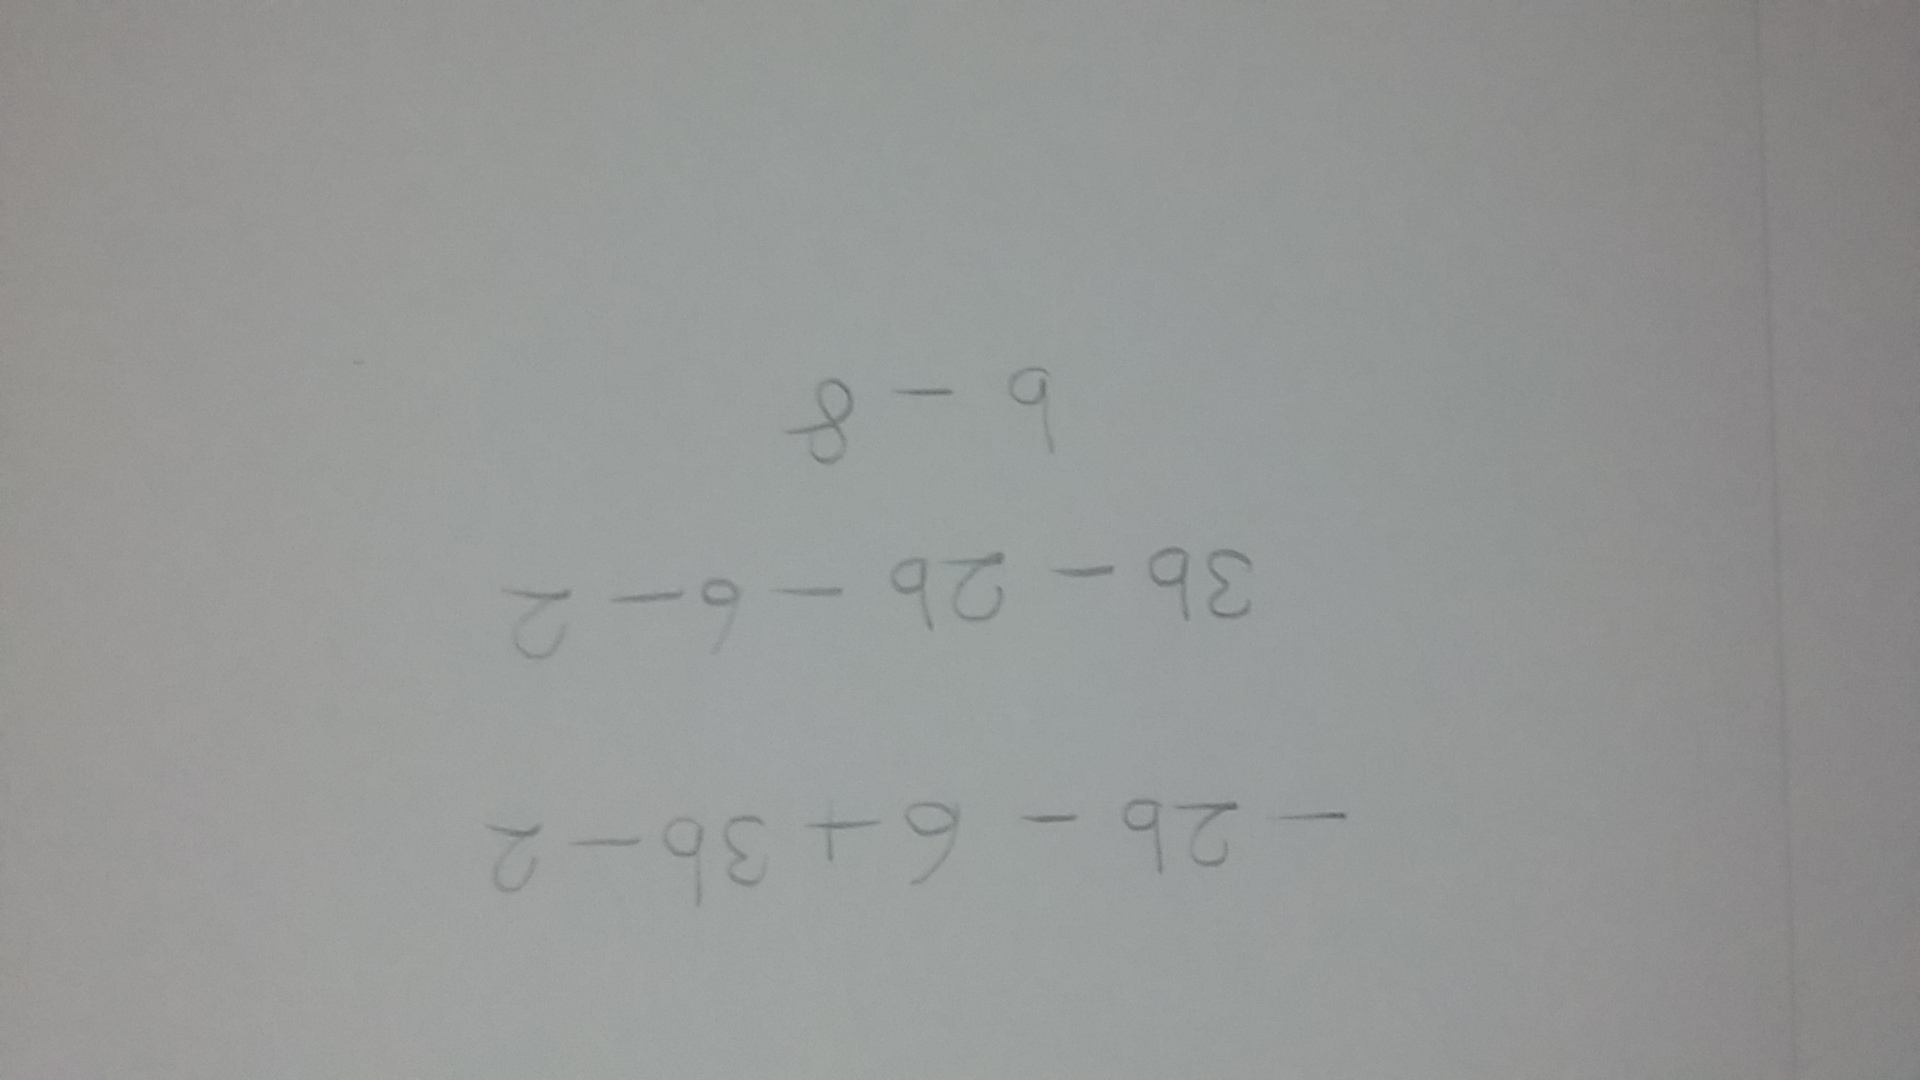 - 2b - 6 + 3b - 2
3b - 2b - 6 - 2
b - 8